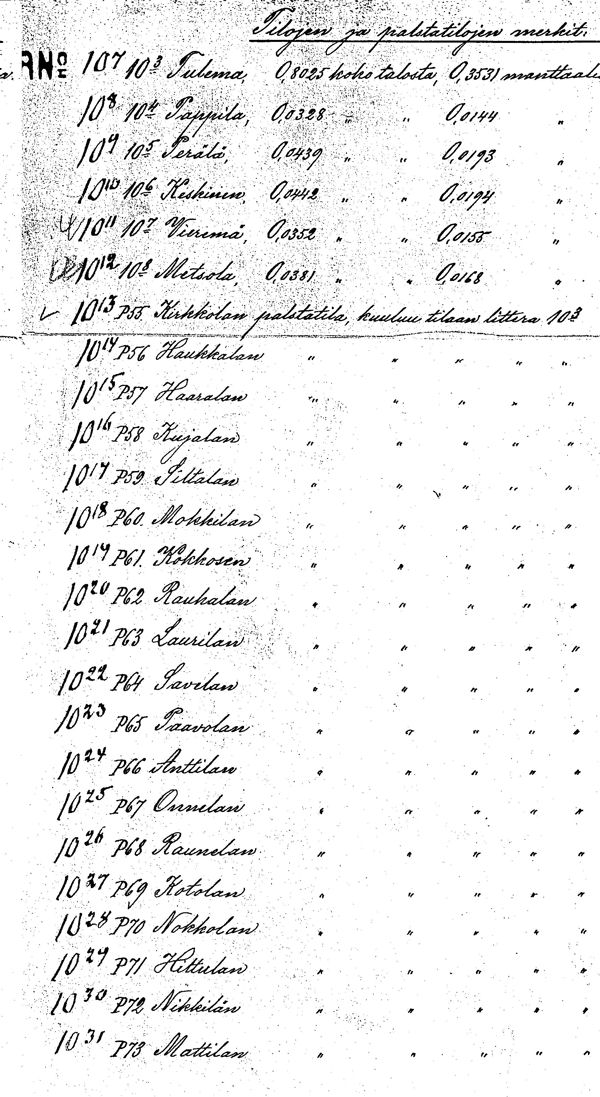 Tilojen ja palstatilojen merkit.
RNo 10⁷ 10³ Tulema, 0,8025 koko talosta, 0,3531 manttaalia
10⁸ 10⁴ Pappila, 0,0328 " " 0,0144 "
10⁹ 10⁵ Perälä, 0,0439 " " 0,0193 "
10¹⁰ 10⁶ Keskinen, 0,0442 " " 0,0194 "
10¹¹ 10⁷ Vieremä, 0,0352 " " 0,0155 "
10¹² 10⁸ Metsola, 0,0381 " " 0,0168 "
10¹³ P55 Kirkkolan palstatila, kuuluu tilaan littera 10³
10¹⁴ P56 Haukkalan " " " " "
10¹⁵ P57 Haaralan " " " " "
10¹⁶ P58 Kujalan " " " " "
10¹⁷ P59 Siltalan " " " " "
10¹⁸ P60 Mokkilan " " " " "
10¹⁹ P61 Kokkosen " " " " "
10²⁰ P62 Rauhalan " " " " "
10²¹ P63 Laurilan " " " " "
10²² P64 Savelan " " " " "
10²³ P65 Paavolan " " " " "
10²⁴ P66 Anttilan " " " " "
10²⁵ P67 Onnelan " " " " "
10²⁶ P68 Raunelan " " " " "
10²⁷ P69 Kotolan " " " " "
10²⁸ P70 Nokkolan " " " " "
10²⁹ P71 Hittulan " " " " "
10³⁰ P72 Nikkilän " " " " "
10³¹ P73 Mattilan " " " " "